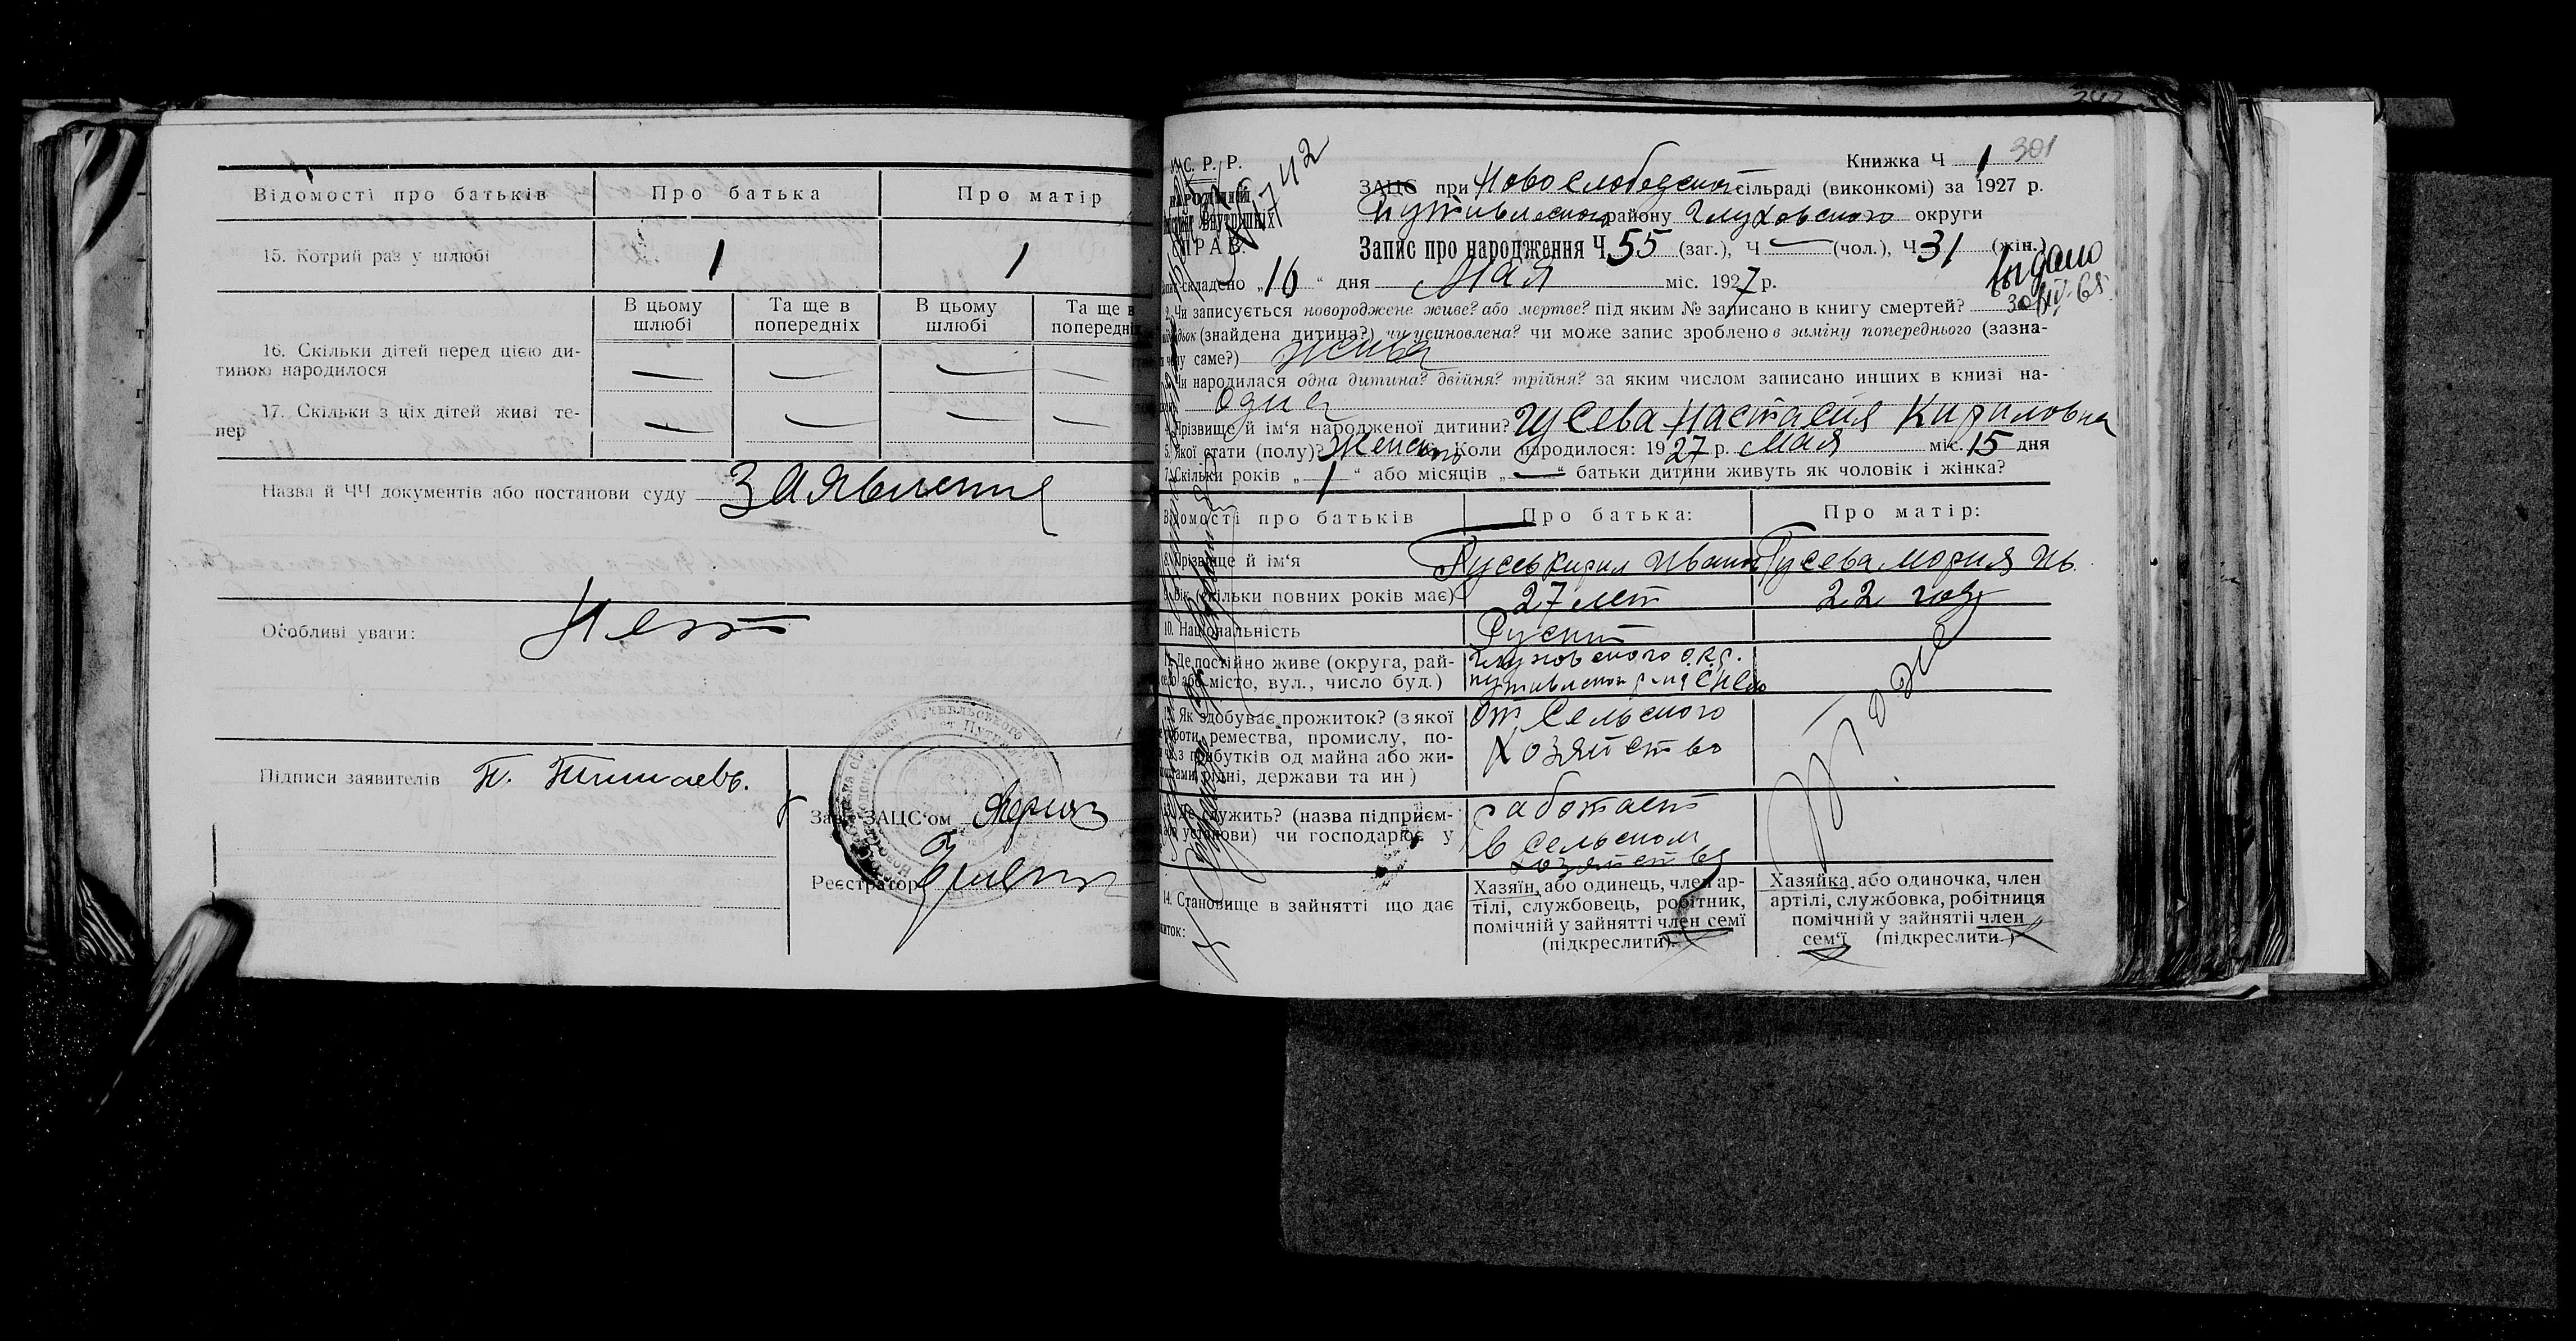 Відомості про батьків Про батька Про матір
15. Котрий раз у шлюбі 1 1
В цьому шлюбі Та ще в попередніх В цьому шлюбі Та ще в
16. Скільки дітей перед цією ди-
тиною народилося — — — —
17. Скільки з ціх дітей живі те-
пер — — — —
Назва й ЧЧ документів або постанови суду Заявление
Особливі уваги: Нет
Підписи заявителів
ЗАЦС'ом
Реєстратор
С. Р. Р.
Книжка Ч 1 301
ЗАЦС при Новослободской сільраді (виконкомі) за 1927 р.
Путивльского району Глуховского округи
Запис про народження Ч 55 (заг.), Ч — (чол.), Ч 31 (жін.)
Выдано
складено „16“ дня Мая міс. 1927 р.
Чи записується новороджене живе? або мертве? під яким № записано в книгу смертей?
(знайдена дитина?) чи усиновлена? чи може запис зроблено в заміну попереднього (зазна-
саме?) жива
Чи народилася одна дитина? двійня? трійня? за яким числом записано инших в книзі на-
одна
Прізвище й ім'я народженої дитини? Гусева Настасия Кириловна
5. Якої стати (полу)? Женского Коли народилося: 1927 р. Мая міс. 15 дня
7. Скільки років „1“ або місяців „—“ батьки дитини живуть як чоловік і жінка?
Відомості про батьків Про батька: Про матір:
8. Прізвище й ім'я Гусев Кирил Иванов Гусева Мария Ив.
9. Вік (скільки повних років має) 27 лет 22 года
10. Національність
11. Де постійно живе (округа, рай-
село або місто, вул., число буд.) Глуховского окр.
12. Як здобуває прожиток? (з якої От Сельского
роботи, ремества, промислу, по- хозяйства
з прибутків од майна або жи-
рідні, держави та ин)
Де служить? (назва підприєм- работает
установи) чи господарює у в сельском
хозяйстве
14. Становище в зайнятті що дає
Хазяїн, або одинець, член ар-
тілі, службовець, робітник,
помічній у зайнятті член семї
(підкреслити).
Хазяйка або одиночка, член
артілі, службовка, робітниця
помічній у зайнятіі член
сем'ї (підкреслити.)